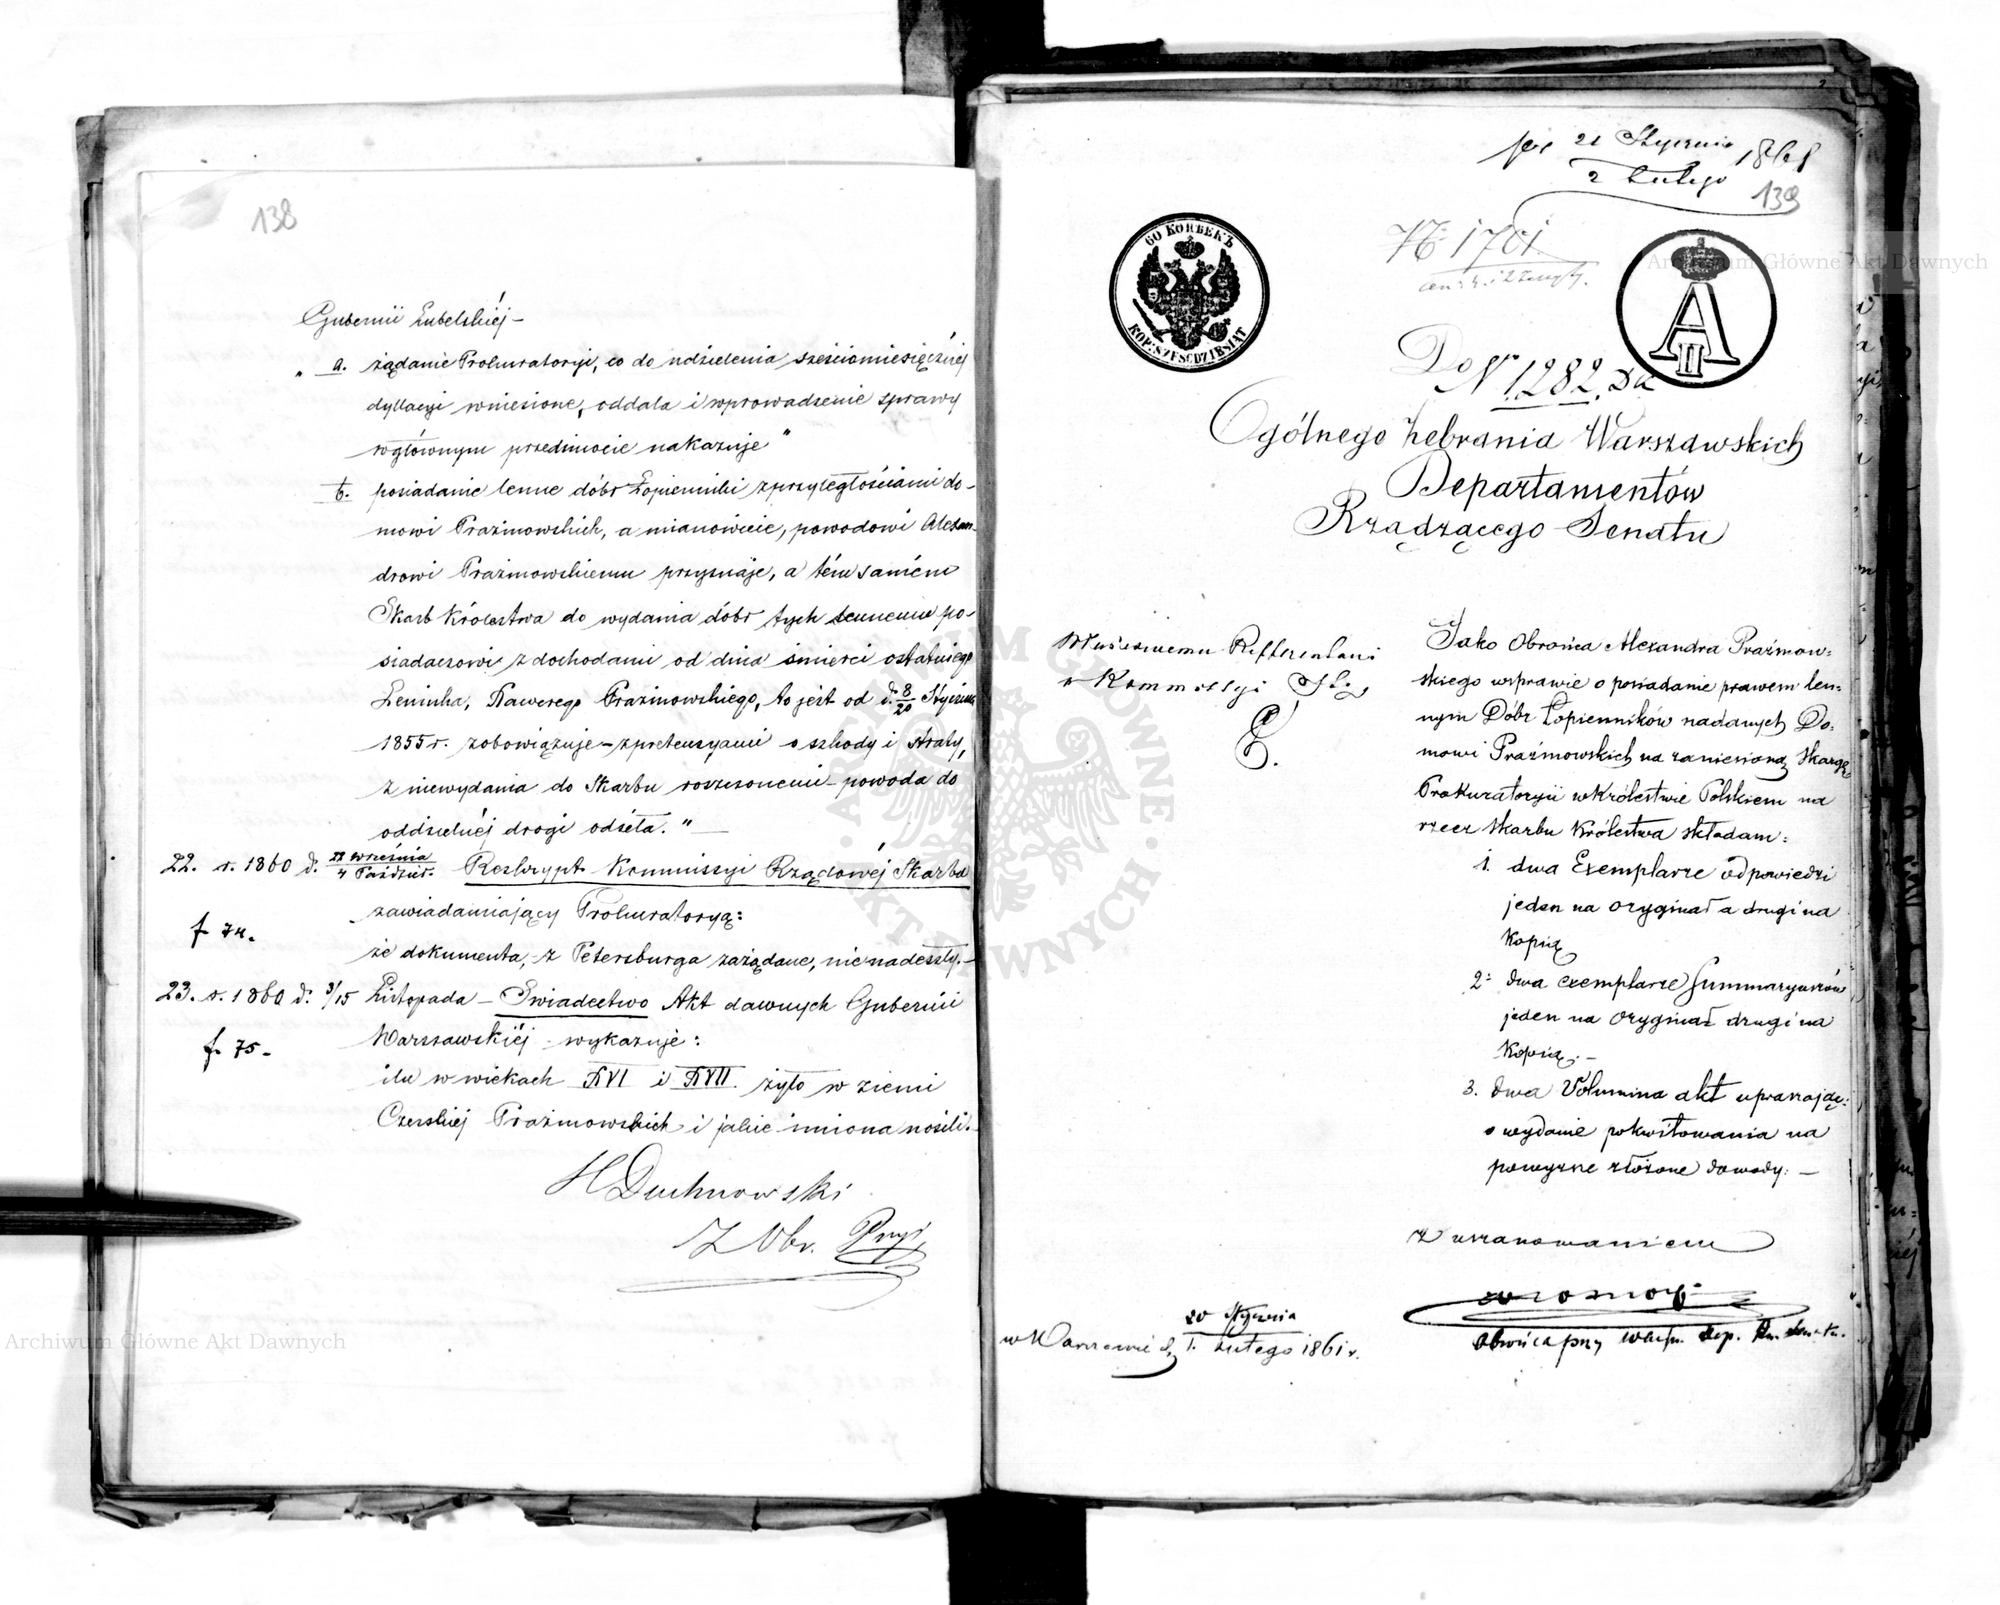 138
Gubernii Lubelskiéj –
„ a. żądanie Prokuratoryi, co do udzielenia sześciomiesięcznéj
dyllacyi wniesione, oddala i wprowadzenie sprawy
w głównym przedmiocie nakazuje"
b. posiadanie lenne dóbr Łopienniki z przyległościami do-
mowi Prażmowskich, a mianowicie, powodowi Alexan-
drowi Prażmowskiemu przyznaje, a tém samém
Skarb Królestwa do wydania dóbr tych lennemu po-
siadaczowi z dochodami od dnia śmierci ostatniego
Lennika, Xawerego Prażmowskiego, to jest od d. 8/20 Stycznia
1855 r. zobowiązuje – z pretensyami o szkody i straty,
z niewydania do Skarbu roszczonemi – powoda do
oddzielnéj drogi odséła." –
22. r. 1860 d. 22 Września / 4 Paździer. Reskrypt Kommissyi Rządowéj Skarbu
zawiadamiający Prokuratoryą:
f. 74.
że dokumenta, z Petersburga zażądane, nie nadeszły. –
23. r. 1860 d. 3/15 Listopada – Świadectwo Akt dawnych Gubernii
Warszawskiéj wykazuje:
f. 75.
ilu w wiekach XVI i XVII. żyło w ziemi
Czerskiéj Prażmowskich i jakie imiona nosili.
H Duchnowski
Z Obr. Pryi
21 Stycznia
2 Lutego 1861
139
N 1701.
60 КОПѢЕКЪ
KOP: SZEŚĆDZIESIĄT
A II
Do N. 1282.
Ogólnego Zebrania Warszawskich
Departamentów
Rządzącego Senatu
Referentowi
w Kommissyi
Jako Obrońca Alexandra Prażmow:
skiego w sprawie o posiadanie prawem len:
nym Dóbr Łopienników nadanych Do:
mowi Prażmowskich na zaniesioną skargę
Prokuratoryi w Królestwie Polskiem na
rzecz Skarbu Królestwa składam:
1. dwa Exemplarze odpowiedzi
jeden na oryginał a drugi na
kopią
2: dwa exemplarze Summaryuszów
jeden na oryginał drugi na
kopią. –
3. dwa Volumina akt upraszając:
o wydanie pokwitowania na
powyższe złożone dowody: –
Z uszanowaniem
Obrońca przy Warsz. Dep. Rz. Senatu.
w Warszawie d. 20 Stycznia / 1. Lutego 1861 r.
Archiwum Główne Akt Dawnych
Archiwum Główne Akt Dawnych
ARCHIWUM GŁÓWNE AKT DAWNYCH